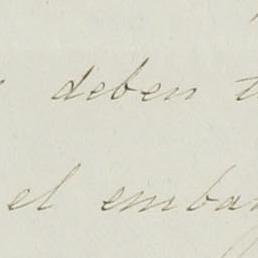 deben
el emba